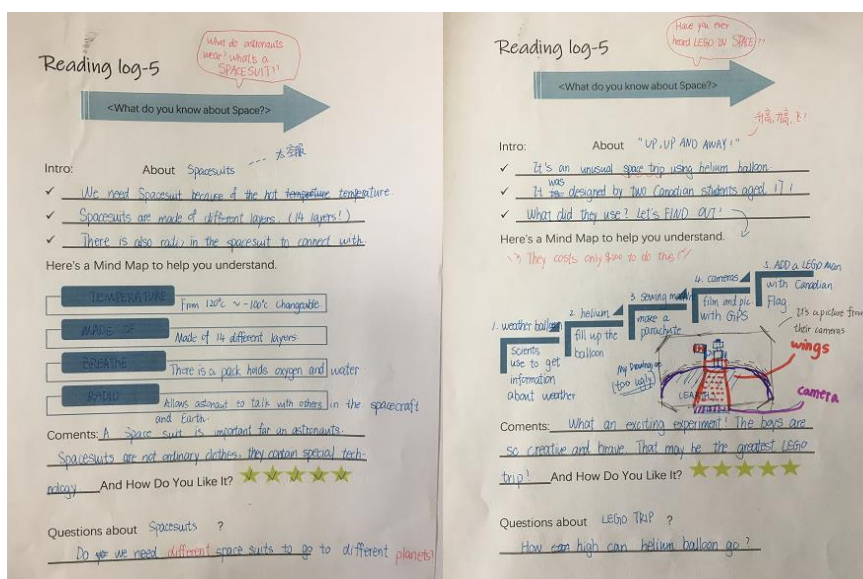 Reading log-5
What do astronauts
wear? What's a
SPACESUIT?!
<What do you know about Space?>
Intro: About Spacesuits ---- 太空服
✓ We need Spacesuit because of the hot temperature.
✓ Spacesuits are made of different layers. (14 layers!)
✓ There is also radio in the spacesuit to connect with.
Here's a Mind Map to help you understand.
TEMPERATURE From 120°c ~ -100°c changeable
MADE OF Made of 14 different layers
BREATHE There is a pack holds oxygen and water
RADIO Allows astronaut to talk with others in the spacecraft
and Earth.
Coments: A Space suit is important for an astronauts.
Spacesuits are not ordinary clothes, they contain special tech-
nology And How Do You Like It?
Questions about Spacesuits ?
Do we need different space suits to go to different planets?
Reading log-5
Have you ever
heard LEGO IN SPACE?!
<What do you know about Space?>
Intro: About "UP, UP AND AWAY!"
✓ It's an unusual space trip using helium balloon.
✓ It was designed by two Canadian students aged 17!
✓ What did they use? Let's FIND OUT!
Here's a Mind Map to help you understand.
They costs only $400 to do this!
1. weather balloon
scients
use to get
information
about weather
2 helium
fill up the
balloon
3 sewing machine
make a
parachute
4. cameras
film and pic.
with GPS
5. ADD a LEGO man
with Canadian
Flag.
It's a picture from
their cameras
My Drawing is
(too ugly)
(EARTH)
wings
camera
Coments: What an exciting experiment! The boys are
so creative and brave. That may be the greatest LEGO
trip! And How Do You Like It?
Questions about LEGO TRIP ?
How high can helium balloon go ?